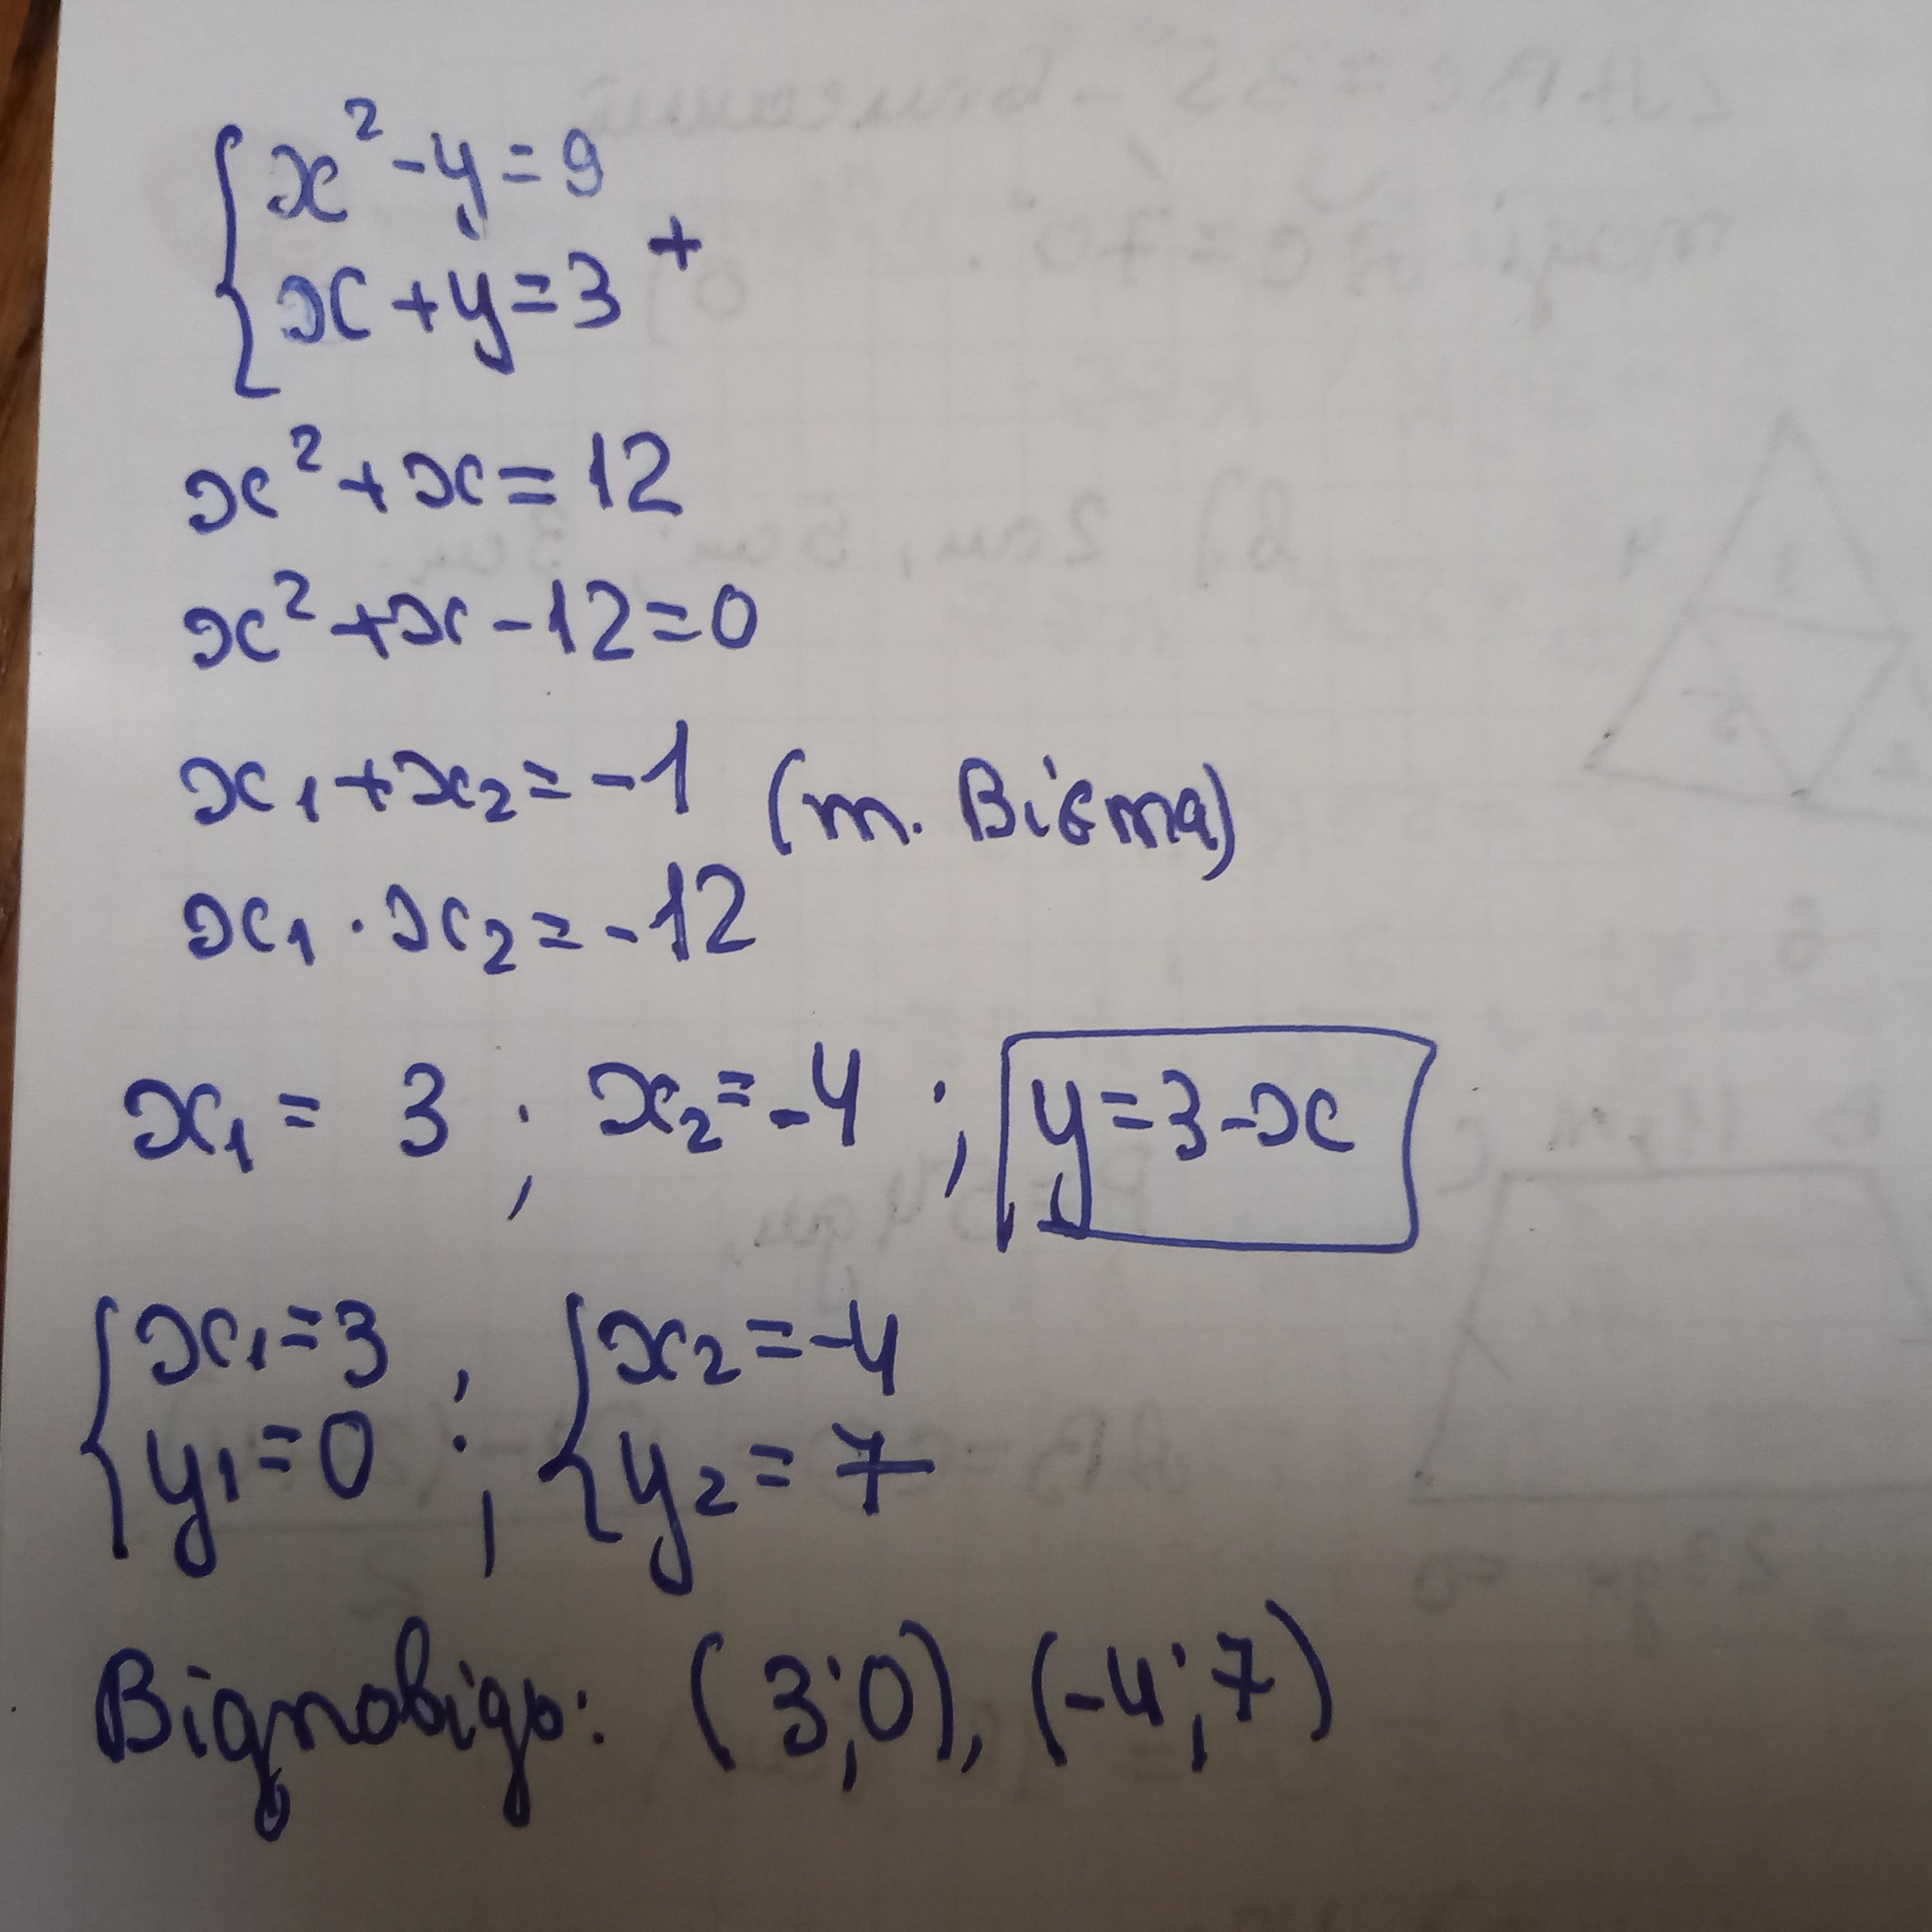 x² - y = 9
x + y = 3 +
x² + x = 12
x² + x - 12 = 0
x₁ + x₂ = -1 (т. Вієта)
x₁ · x₂ = -12
x₁ = 3 ; x₂ = -4 ; y = 3 - x
x₁ = 3 ; x₂ = -4
y₁ = 0 ; y₂ = 7
Відповідь: (3;0), (-4;7)